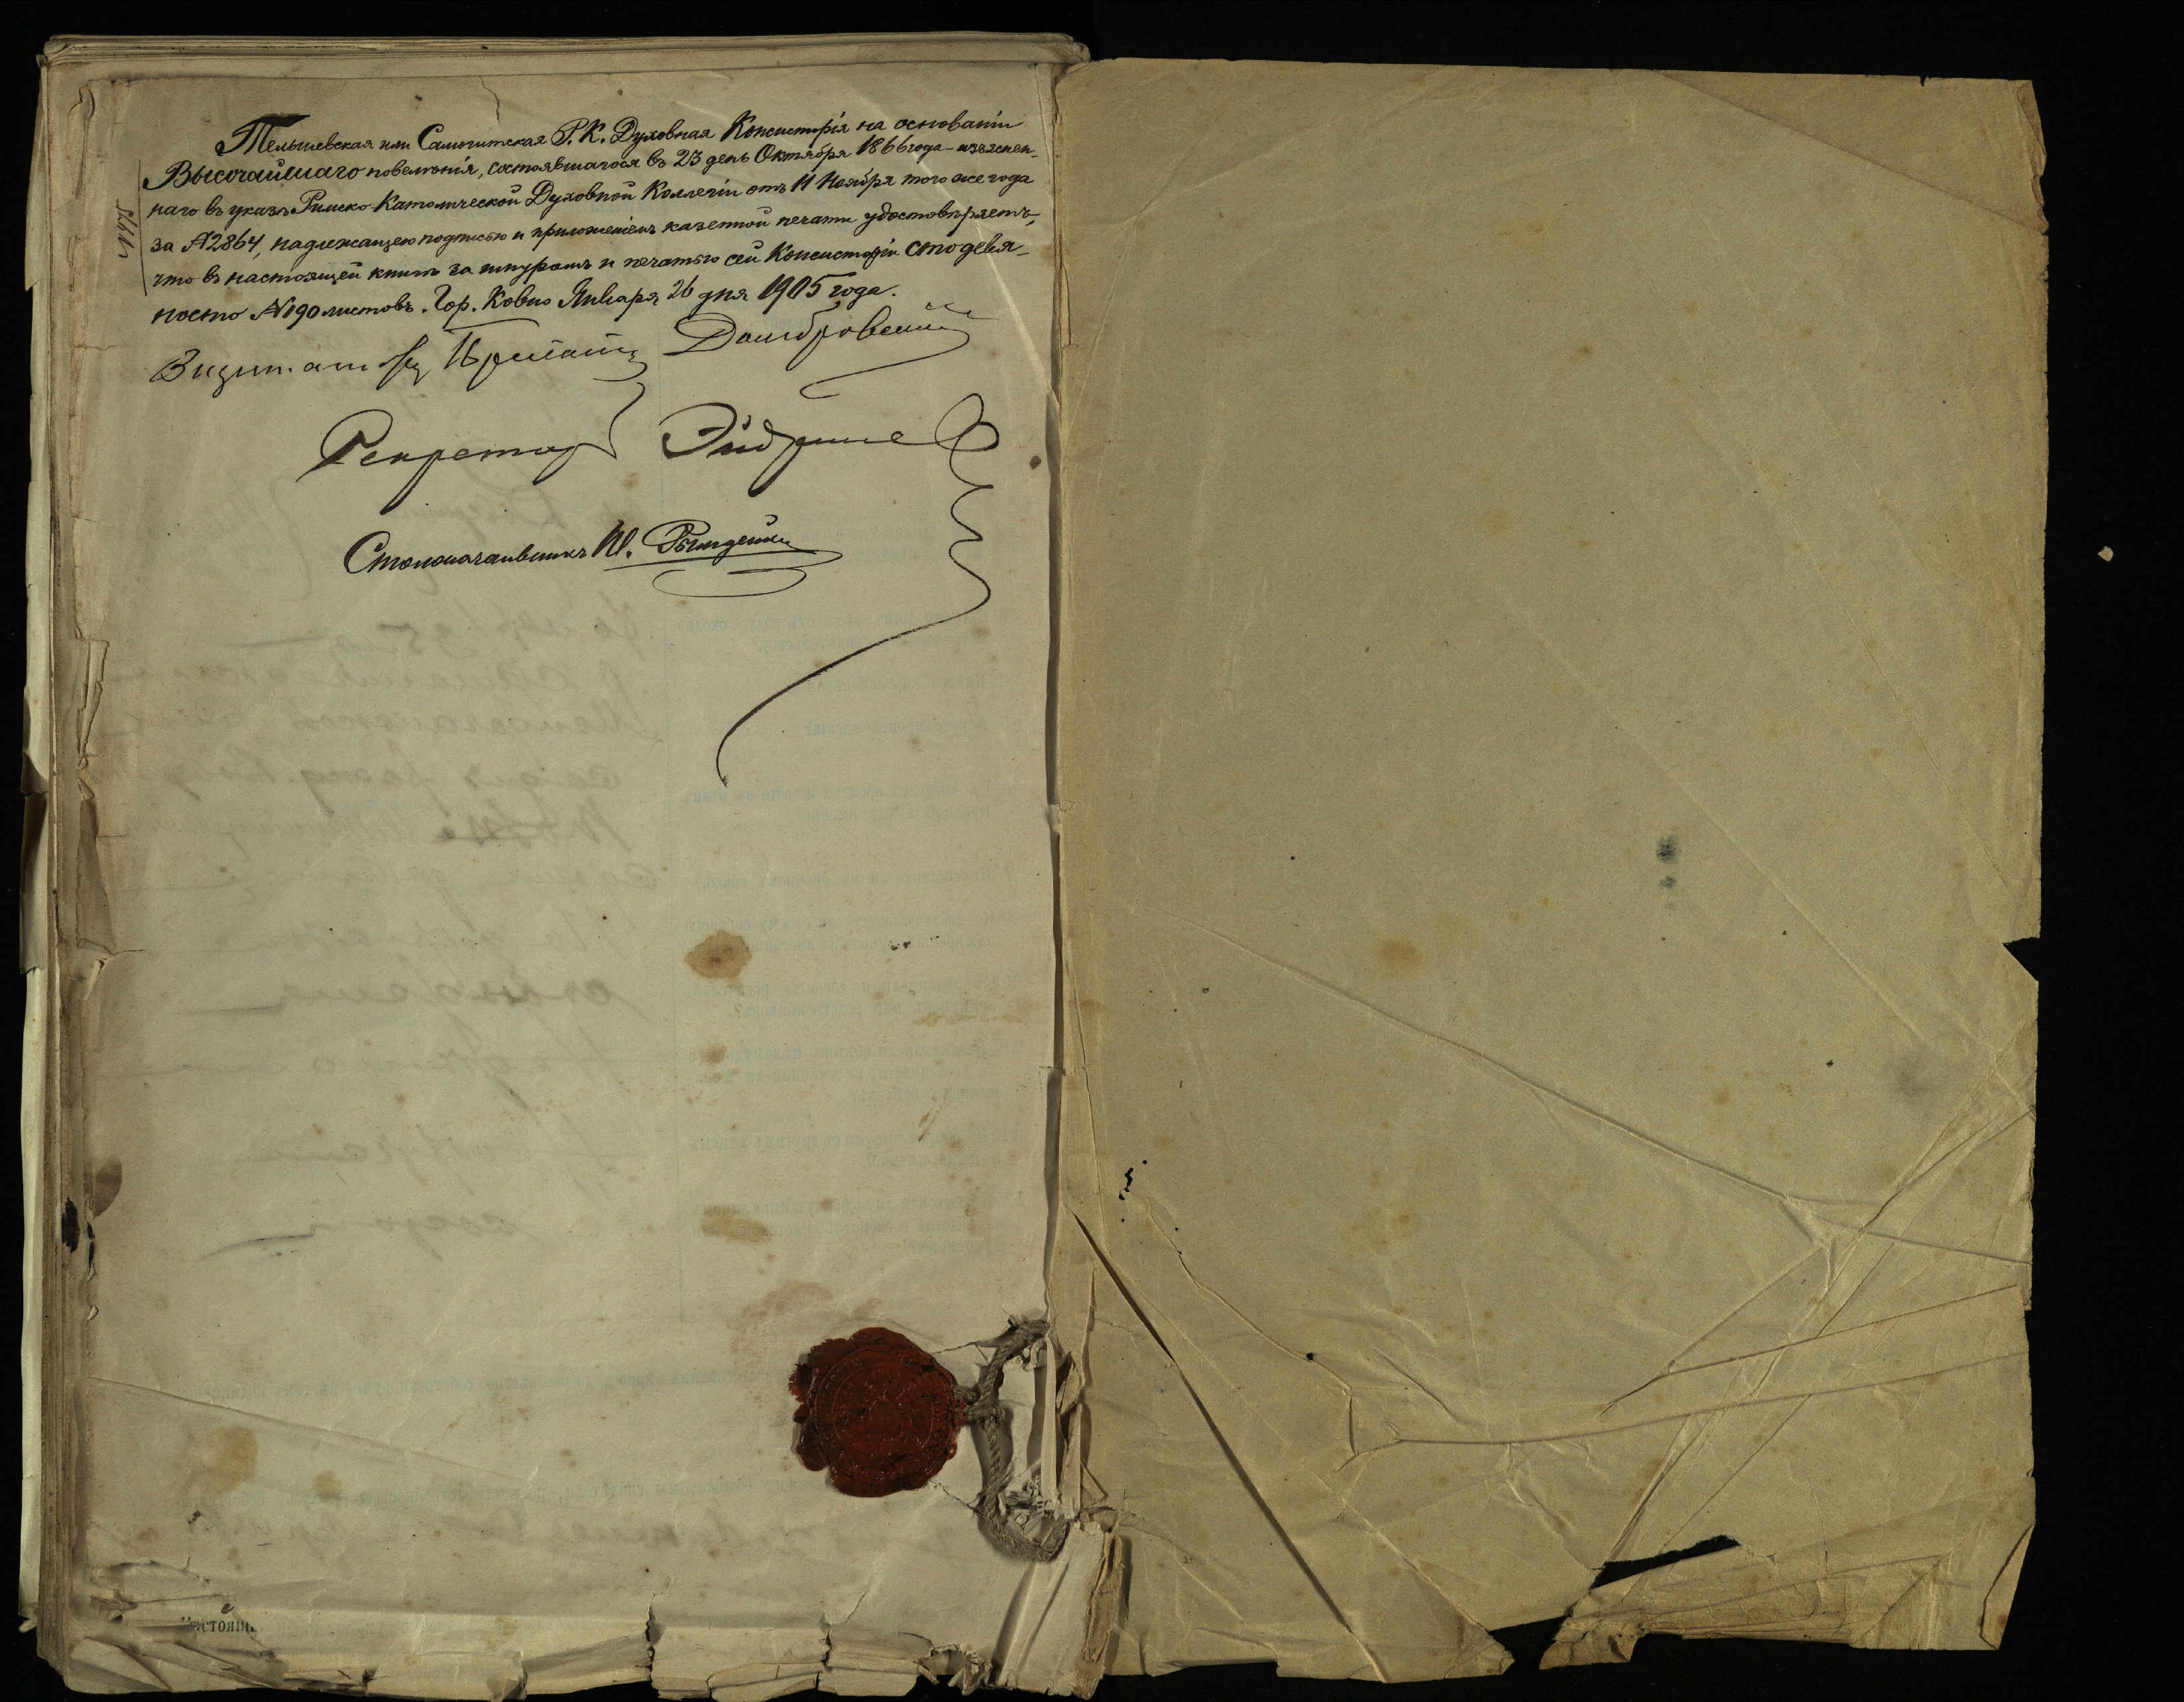 Тельшевская или Самогитская Р. К. Духовная Консисторія на основаніи
Высочайшаго повелѣнія, состоявшагося въ 23 день Октября 1866 года – изъяснен-
наго въ указѣ Римско-Католической Духовной Коллегіи отъ 11 Ноября того же года
за №2864, надлежащею подписью и приложеніемъ казенной печати удостовѣряетъ,
что въ настоящей книгѣ за шнуромъ и печатью сей Консисторіи сто девя-
носто №190 листовъ. Гор. Ковно Января 26 дня 1905 года.
Визитаторъ Прелатъ Домбровскій
Секретарь
Столоначальникъ